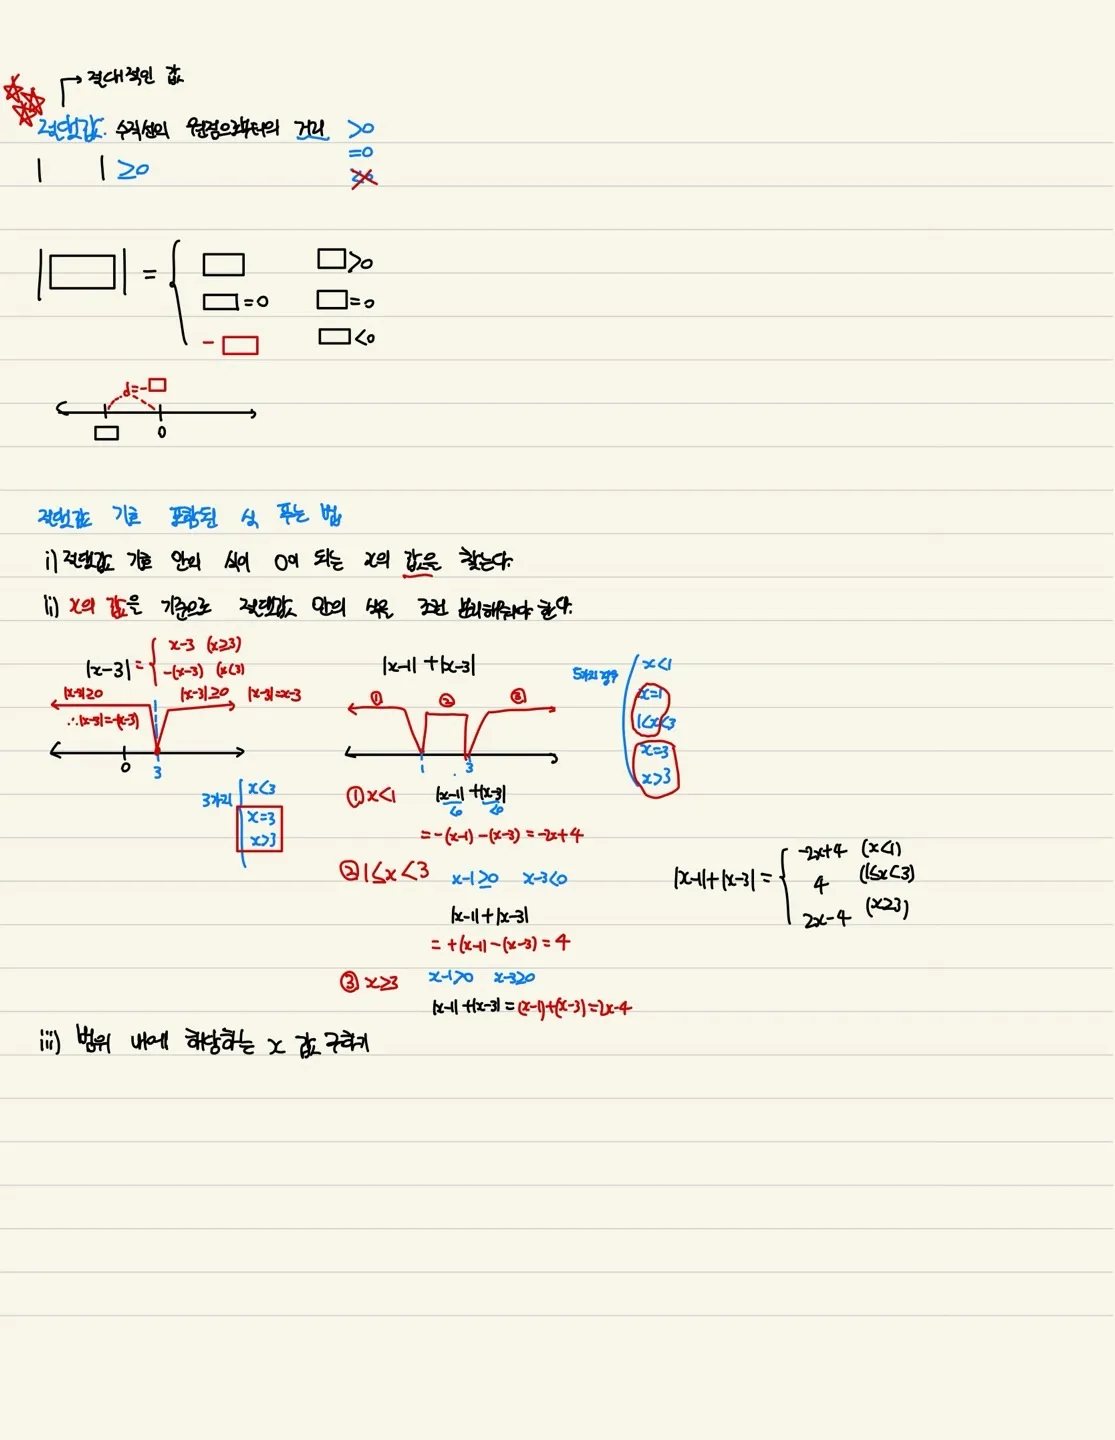 → 절대적인 값
절댓값: 수직선의 원점으로부터의 거리 >0
=0
<0
| | ≥0
|□| = { □ □>0
□=0 □=0
-□ □<0
d=-□
□ 0
절댓값 기호 포함된 식 푸는 법
i) 절댓값 기호 안의 식이 0이 되는 x의 값을 찾는다.
ii) x의 값을 기준으로 절댓값 안의 식을 조건 분리해줘야 한다.
|x-3| = { x-3 (x≥3)
-(x-3) (x<3)
|x-3|≥0 |x-3|≥0 |x-3|=x-3
∴|x-3|=-(x-3)
0 3
3가지 x<3
x=3
x>3
|x-1|+|x-3|
① ② ③
1 3
5가지 경우 x<1
x=1
1<x<3
x=3
x>3
① x<1 |x-1|+|x-3|
<0 <0
= -(x-1)-(x-3) = -2x+4
② 1≤x<3 x-1≥0 x-3<0
|x-1|+|x-3|
= +(x-1)-(x-3) = 4
③ x≥3 x-1>0 x-3≥0
|x-1|+|x-3| = (x-1)+(x-3)=2x-4
|x-1|+|x-3| = { -2x+4 (x<1)
4 (1≤x<3)
2x-4 (x≥3)
iii) 범위 내에 해당하는 x 값 구하기